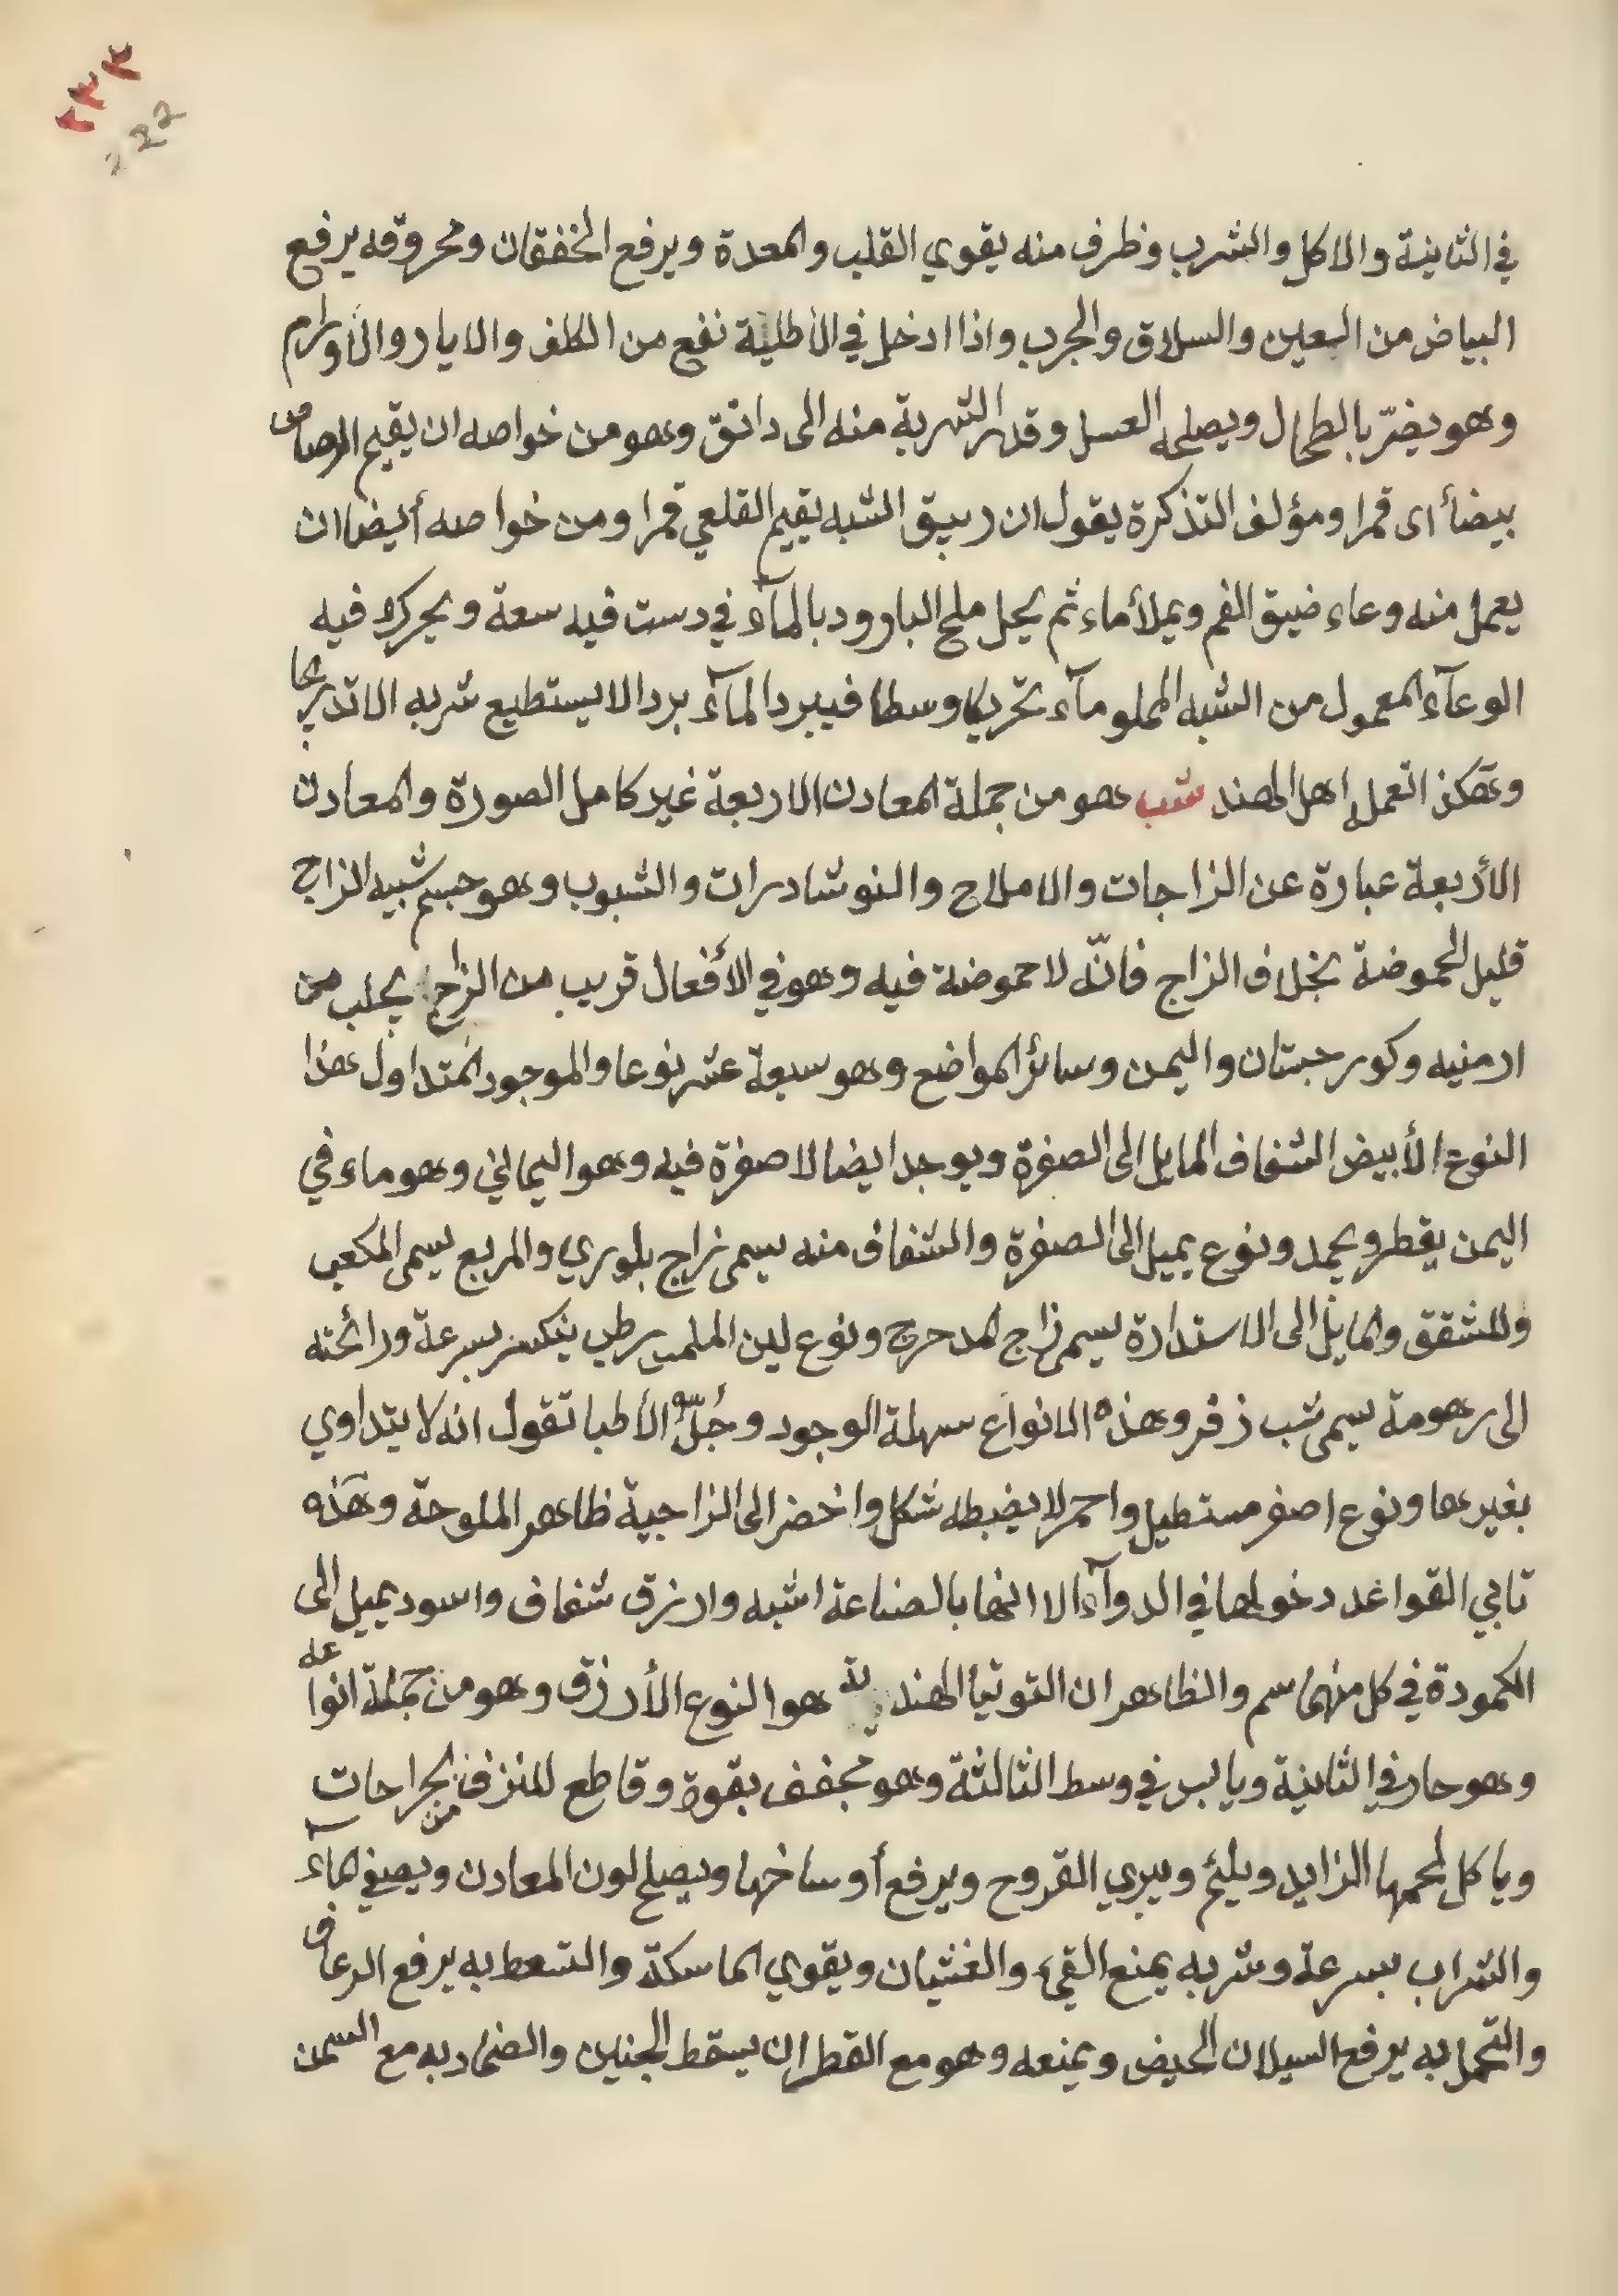 ٢٣٣
222
في الثانية والاكل والشرب وظرف منه يقوي القلب والمعدة ويرفع الخفقان ومحروقه يرفع
البياض من العين والسلاق والجرب واذا ادخل في الأطلية نفع من الكلف والاثار والأورام
وهو يضرّ بالطحال ويصلحه العسل وقدر الشربة منه الى دانق وهو من خواصه ان يقيم الرصاص
بيضأ اى قمرا ومؤلف التذكرة يقول ان ربيق الشبه يقيم القلعي قمرا ومن خواصه أيضا ان
يعمل منه وعاء ضيق الفم ويملأ ماء ثم يحل ملح البارود بالمآء في دست فيه سعة ويحرك فيه
الوعآء المعمول من الشبه المملو مآء تحريكا وسطا فيبرد المآء بردا لا يستطيع شربه الا تدريجا
وهكذا تعمله اهل الهند شب هو من جملة المعادن الاربعة غير كامل الصورة والمعادن
الأربعة عبارة عن الزاجات والاملاح والنوشادرات والشبوب وهو جسم شبيه الزاج
قليل الحموضة بخلاف الزاج فانّه لا حموضة فيه وهو في الأفعال قريب من الزاج يجلب من
ارمنيه وكورجستان واليمن وسائر المواضع وهو سبعة عشر نوعا والموجود المتداول هذا
النوع الأبيض الشفاف المايل الى الصفرة ويوجد ايضا لا صفرة فيه وهو اليماني وهو ماء في
اليمن يقطر ويجمد ونوع يميل الى الصفرة والشفاف منه يسمى زاج بلوري والمربع يسمى المكعب
وللشقق والمايل الى الاستدارة يسمى زاج المدحرج ونوع لين الملمس رطب ينكسر بسرعة ورائحته
الى زهومة يسمى شب زفر وهذه الانواع سهلة الوجود وجُلّة الأطبا تقول انه لا يتداوي
بغيرها ونوع اصفر مستطيل واحمر لا يضبطه شكل واخضر الى الزاجية ظاهر الملوحة وهذه
تابي القواعد دخولها في الدوآء الا انها بالصناعة اشبه وازرق شفاف واسود يميل الى
الكمودة في كل منهما سم والظاهر ان التوتيأ الهندية هو النوع الأزرق وهو من جملة انواعه
وهو حار في الثانية ويابس في وسط الثالثة وهو مجفف بقوة وقاطع للنزف من الجراحات
وياكل لحمها الزايد ويلئم ويبري القروح ويرفع أوساخها ويصلح لون المعادن ويصفي المآء
والشراب بسرعة وشربه يمنع القئ والغثيان ويقوي الماسكة والتسعط به يرفع الرعاف
والتحمل به يرفع السيلان الحيض ويمنعه وهو مع القطران يسقط الجنين والضماد به مع السمن